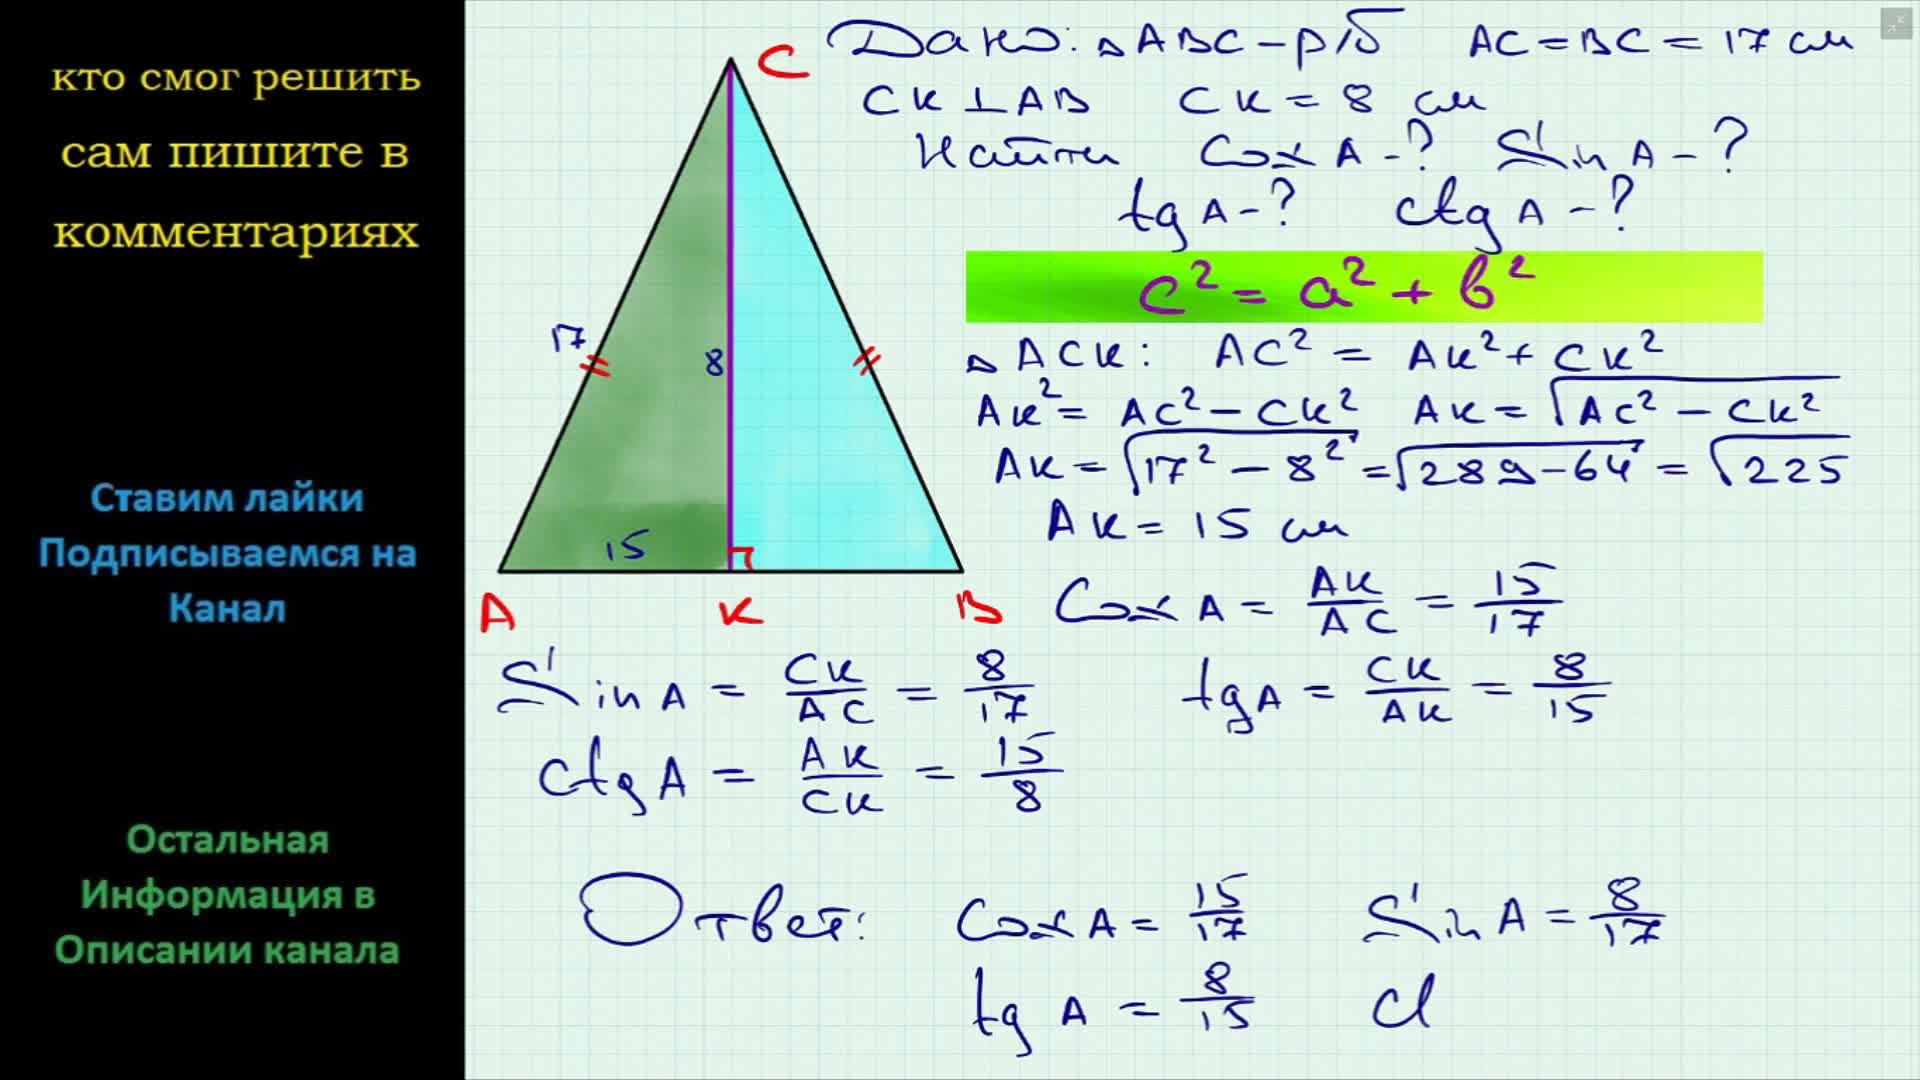 кто смог решить
сам пишите в
комментариях
Ставим лайки
Подписываемся на
Канал
Остальная
Информация в
Описании канала
Дано: △ABC – р/б AC = BC = 17 см
CK ⊥ AB CK = 8 см
Найти Cos A - ? Sin A - ?
tg A - ? ctg A - ?
c² = a² + b²
△ ACK: AC² = AK² + CK²
AK² = AC² – CK² AK = √AC² – CK²
AK = √17² – 8² = √289 – 64 = √225
AK = 15 см
Cos A = AK/AC = 15/17
Sin A = CK/AC = 8/17 tg A = CK/AK = 8/15
Ctg A = AK/CK = 15/8
Ответ: Cos A = 15/17 Sin A = 8/17
tg A = 8/15 ct
C
17
8
15
A
K
B